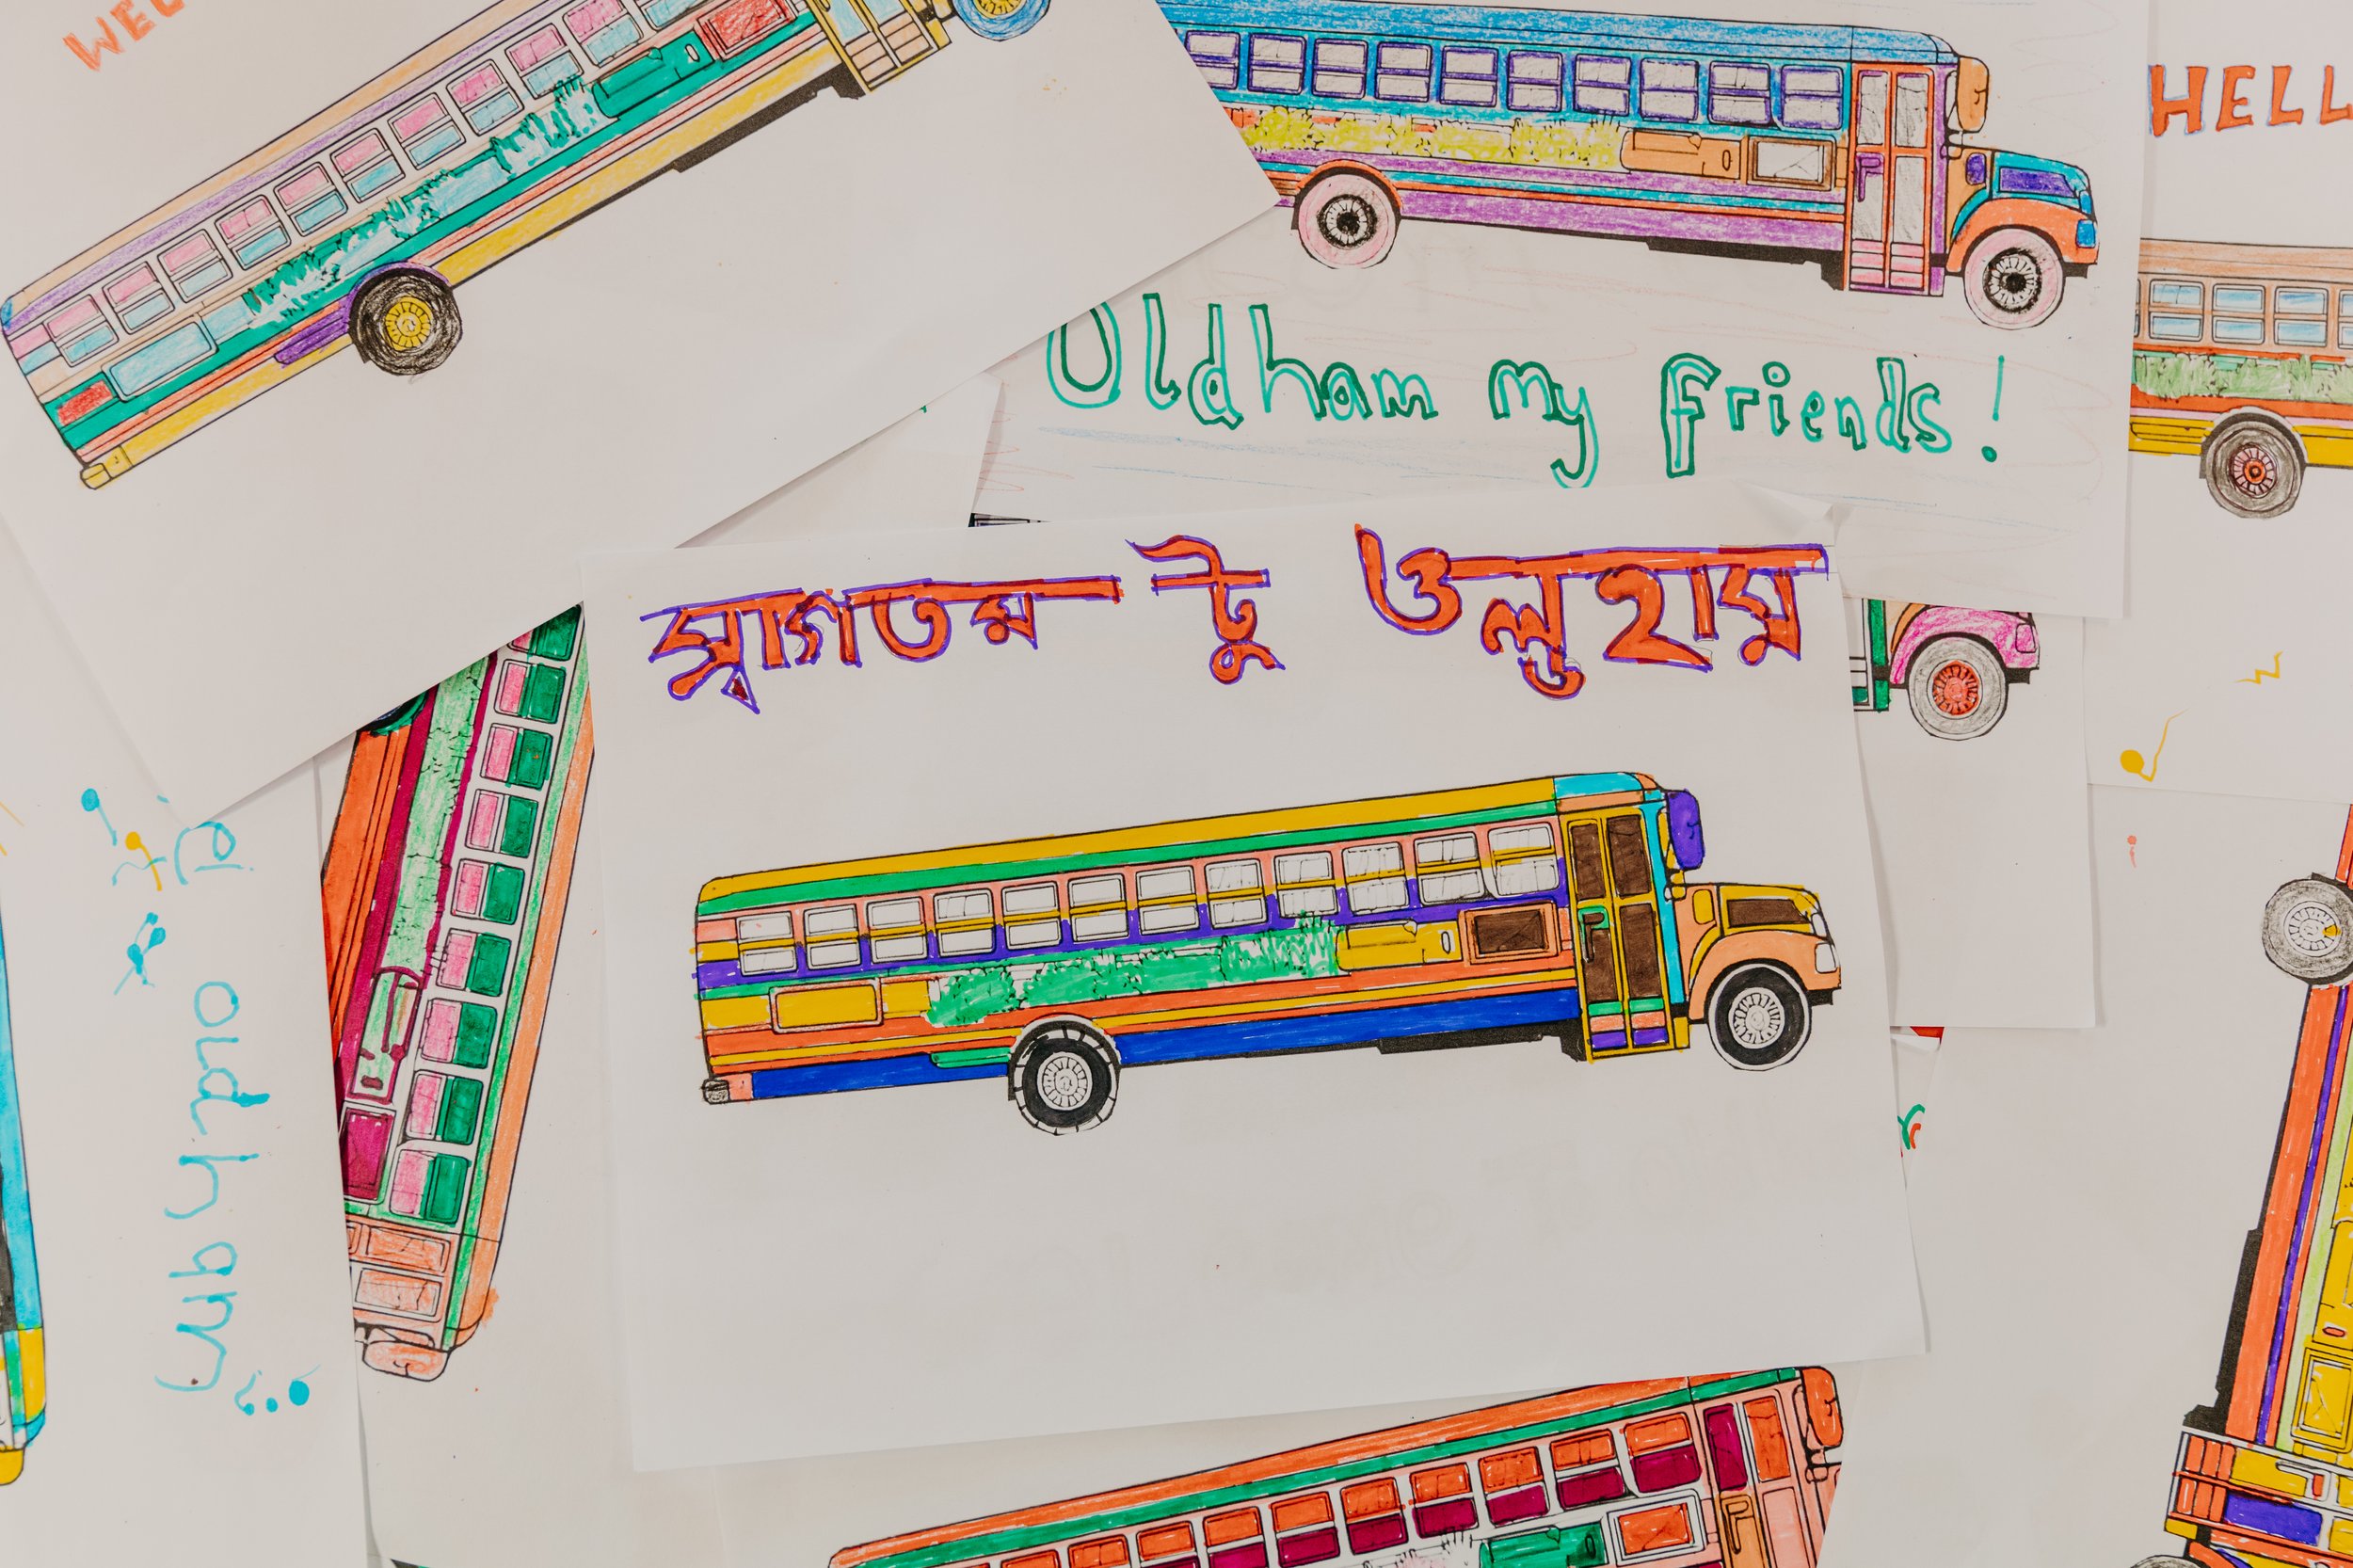 WEL
HELL
Oldham my friends!
স্বাগতম টু ওল্ডহাম
oldham